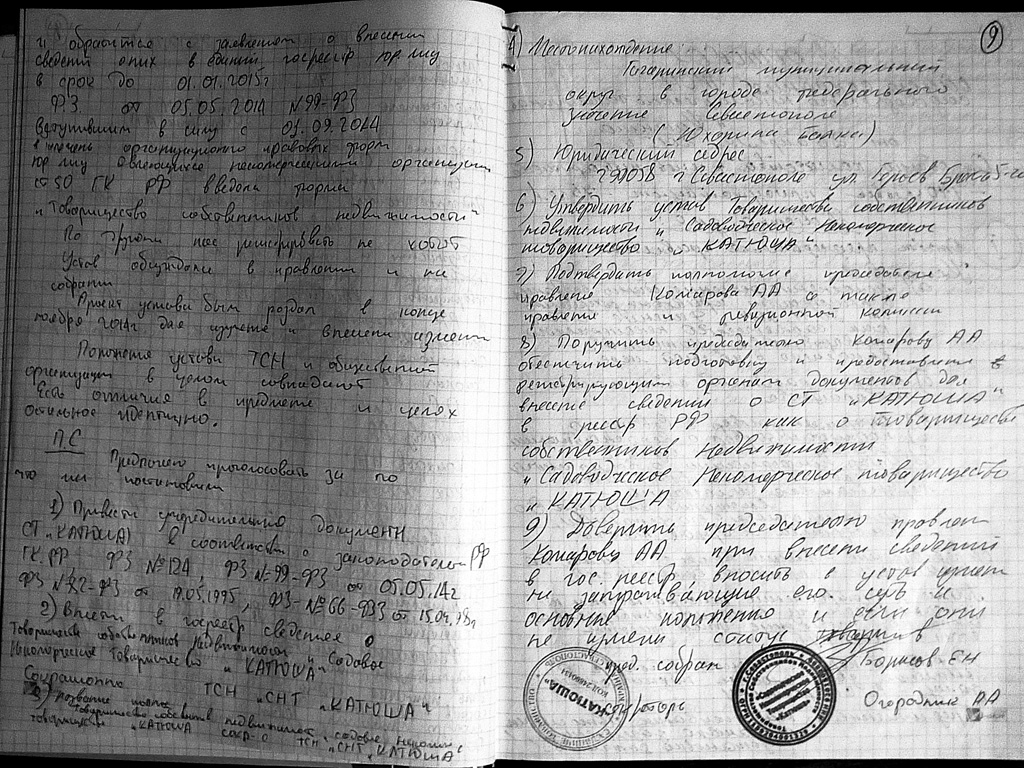 и обратится с заявлением о внесении
сведений о них в единый госреестр юр лиц
в срок до 01.01.2015г
ФЗ от 05.05.2014 №99-ФЗ
Вступившим в силу с 01.09.2014
в перечень организационно правовых форм
юр лиц являющихся некоммерческими организация
ст 50 ГК РФ введена форма
"Товарищество собственников недвижимости"
По другому нас регистрировать не хотят
Устав обсуждали в правлении и на
собрании
Проект устава был роздан в конце
ноября 2014г для изучения и внесения изменен
Положение устава ТСН и общественной
организации в целом совпадают
Есть отличия в предмете и целях
Остальное идентично.
П.С
Предлагаю проголосовать за то
что мы постановили
1) Привести учредительные документы
СТ "КАТЮША" в соответствии с законодател РФ
ГК РФ, ФЗ №124, ФЗ №99-ФЗ от 05.05.14г
ФЗ №82-ФЗ от 19.05.1995, ФЗ-№66-ФЗ от 15.04.98г
2) Внести в госреестр сведения о
Товариществе собственников Недвижимости "Садовое
Некоммерческое Товарищество "КАТЮША"
Сокращенно ТСН "СНТ "КАТЮША"
3) название полное
товарищество собствен недвижимост садовое некоммерч
товарищество "КАТЮША сокр-о ТСН "СНТ "КАТЮША
9
4) Местонахождение:
Гагаринский муниципальный
округ в городе федерального
значение Севастополе
(Юхарина балка)
5) Юридический адрес
299058 г Севастополь ул Героев Бреста 5-
6) Утвердить устав Товарищества собственников
недвижимости "Садоводческое Некоммерческое
товарищество "КАТЮША"
7) Подтвердить полномочие председателя
правление Комарова АА а также
правление и ревизионной комиссии
8) Поручить председателю Комарову АА
обеспечить подготовку и предоставить в
регистрирующим органам документов для
внесение сведений о СТ "КАТЮША"
в реестр РФ как о товариществе
собственников Недвижимости
"Садоводческое Некоммерческое товарищество
"КАТЮША
9) Доверить председателю правлен
Комарову АА, при внесении сведений
в гос. реестр, вносить в устав измен
не затрагивающие его суть и
основные положение и если они
не измени состав
пред. собран Борисов ЕН
секретарь Огородник АА
"КАТЮША"